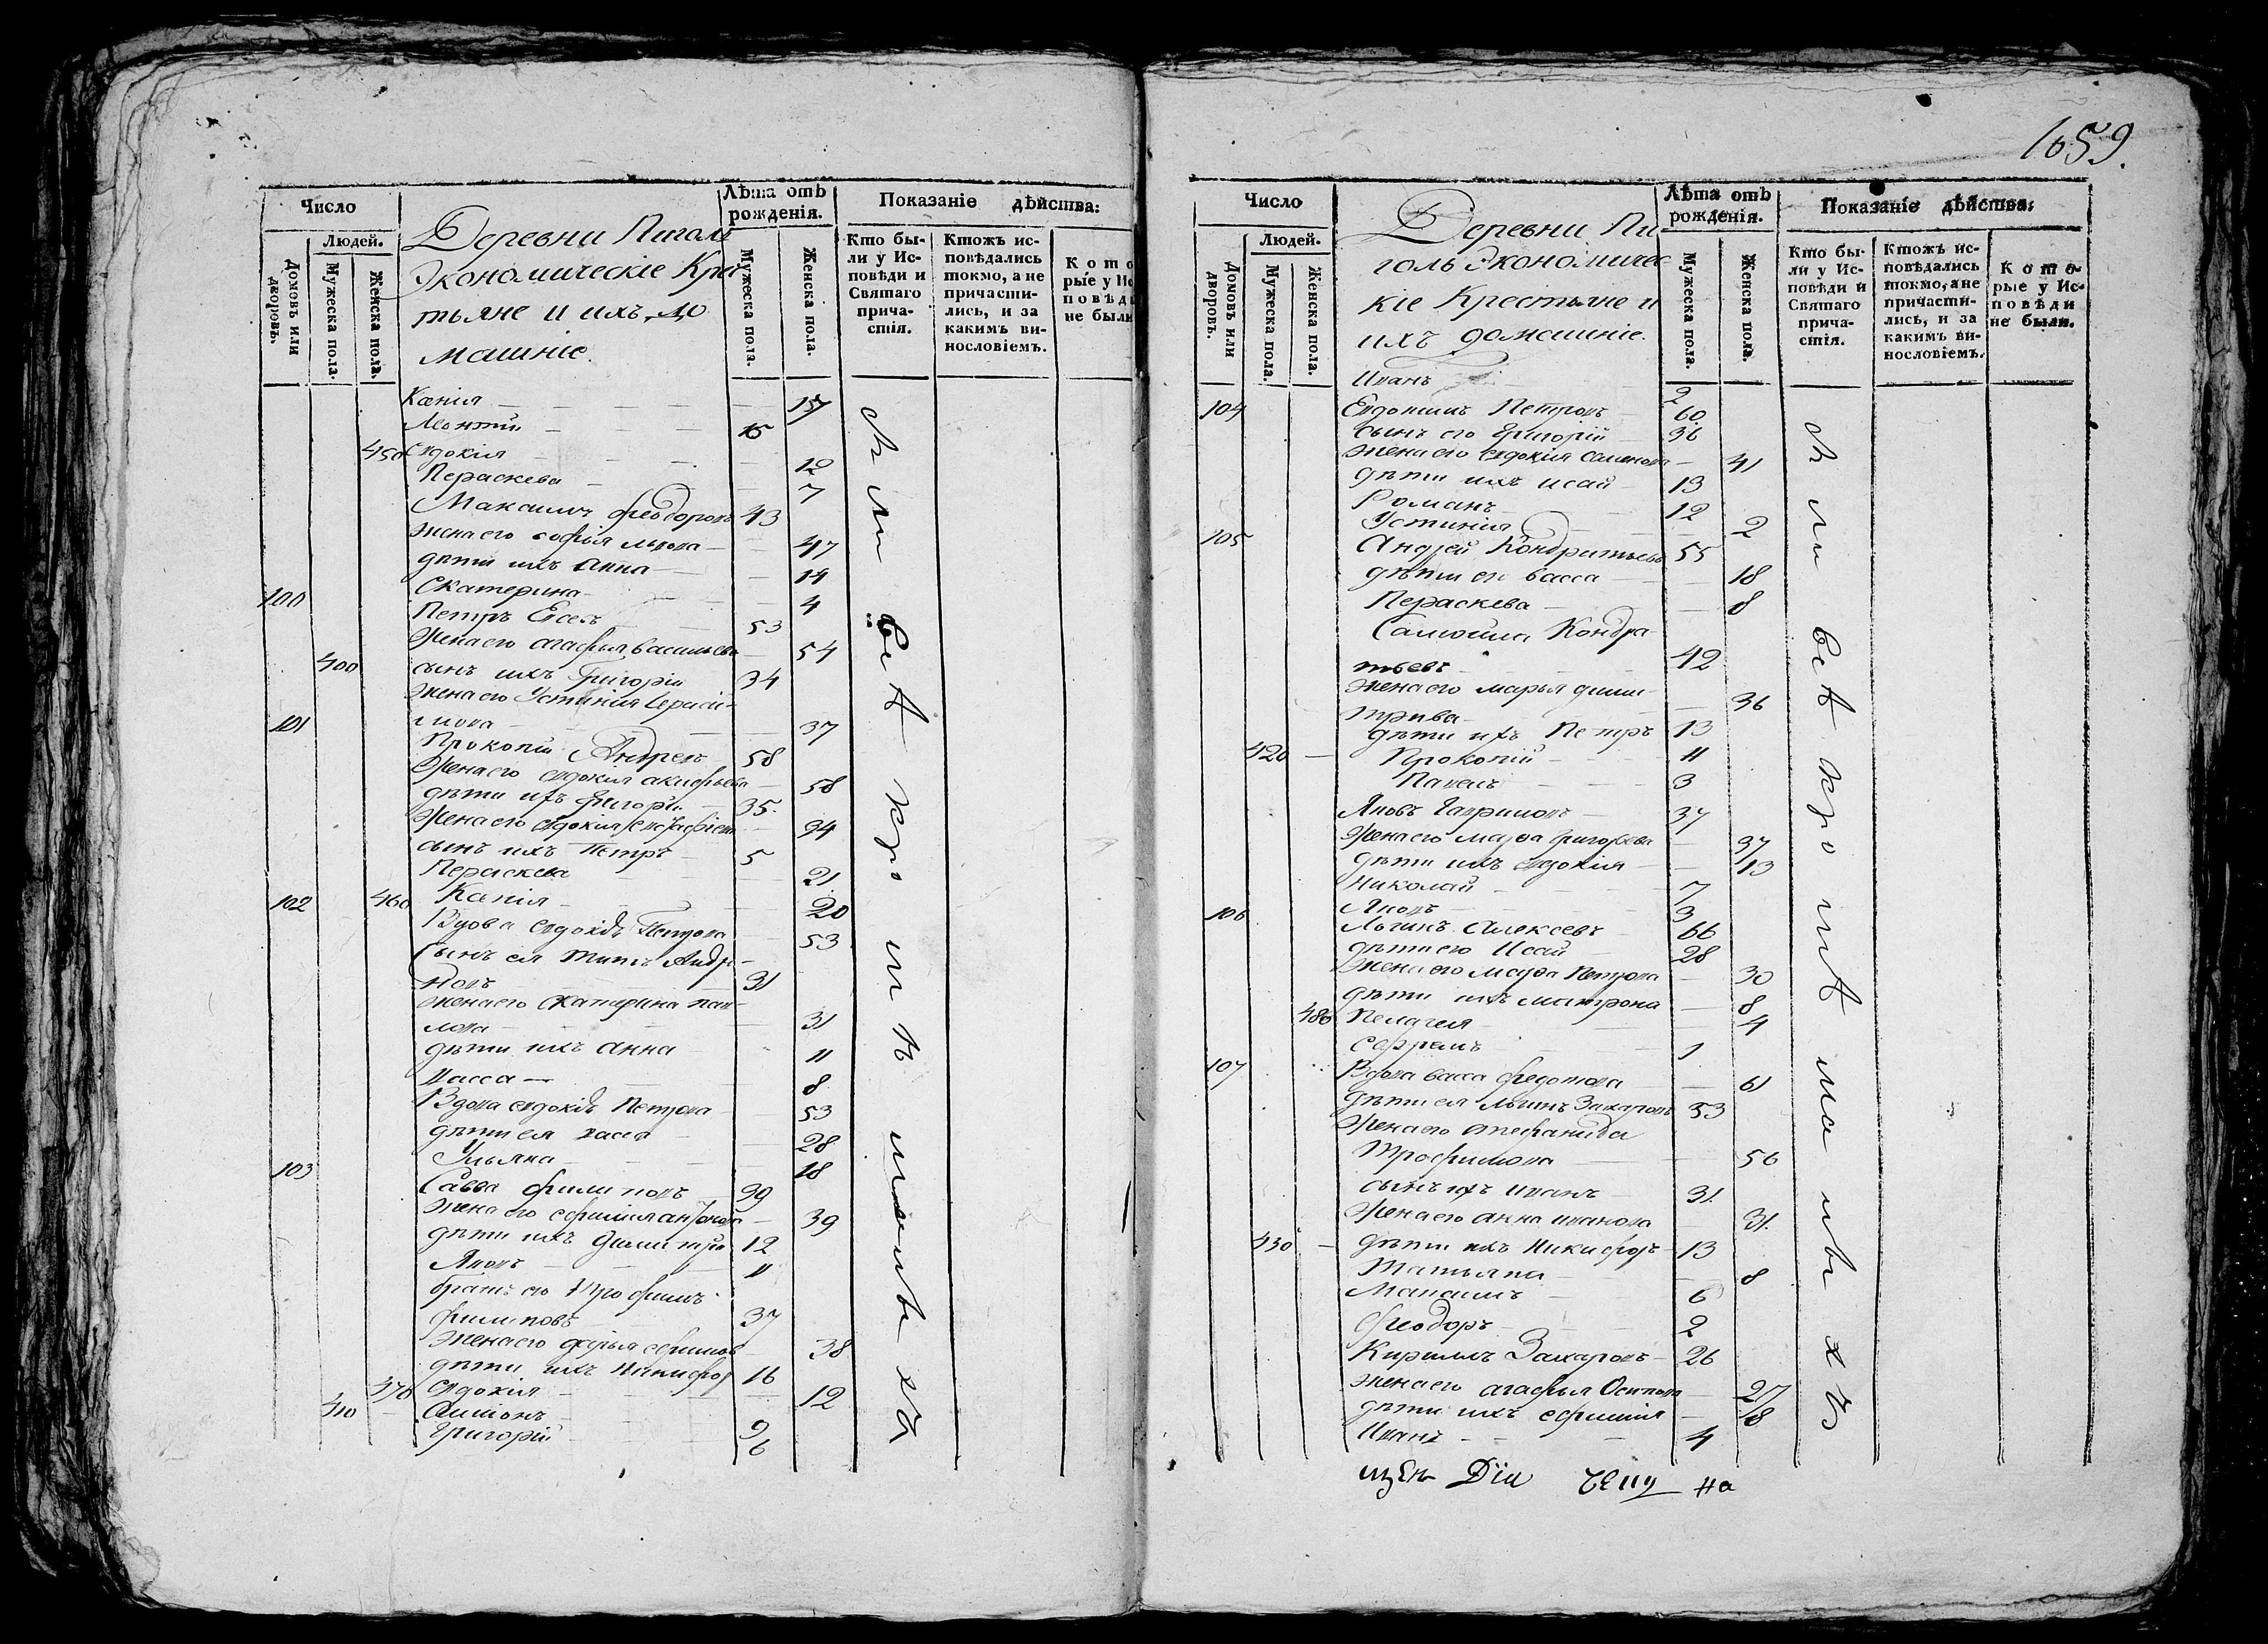 Число
Людей.
Домовъ или дворовъ.
Мужеска пола.
Женска пола.
Деревни Пиголь
Экономическіе Крес
тьяне и ихъ до
машніе.
Лѣта отъ рожденія.
Мужеска пола.
Женска пола.
Показаніе дѣйства:
Кто бы-
ли у Ис-
повѣди и
Святаго
прича-
стія.
Ктожъ ис-
повѣдались
токмо, а не
причасти-
лись, и за
какимъ ви-
нословіемъ.
Кото
рые у Ис
повѣд
не были
Ксенія 15
Леонтій 15
450 Евдокія 12
Пераскева 7
Максимъ Феодоровъ 43
жена его софья львова 47
дѣти ихъ Анна 14
Екатерина 4
100 Петръ Евсеевъ 53
жена его агафья васильева 54
400 сынъ ихъ Григорій 34
жена его Устинія Гераси-
мова 37
101 Прокопій Андреевъ 58
жена его евдокія акифьева 58
дѣти ихъ григорій 35.
жена его евдокія 34
сынъ ихъ Петръ 5
Пераскева 21
460 Ксенія 20
102 Вдова евдокія Петрова 53
Сынъ ея Андре-
новъ 31
жена его екатерина пав-
лова 31
дѣти ихъ анна 11
васса 8
Вдова евдокія Петрова 53
дѣти ея васса 28
Ульяна 18
103 Савва филиповъ 39
жена его ефимія антонова 39
дѣти ихъ димитрій 12
Яковъ 11
братъ его трофимъ
филиповъ 37
жена его дарья ефимова 38
дѣти ихъ Никифоръ 16
470 евдокія 12
410 Симіонъ 9
Григорій 6
1659.
Число
Людей.
Домовъ или дворовъ.
Мужеска пола.
Женска пола.
Деревни Пи
голь Экономичес
кіе Крестьяне и
ихъ домашніе.
Лѣта отъ
рожденія.
Мужеска пола.
Женска пола.
Показаніе дѣйства:
Кто бы-
ли у Ис-
повѣди и
Святаго
прича-
стія.
Ктожъ ис-
повѣдались
токмо, а не
причасти-
лись, и за
какимъ ви-
нословіемъ.
Кото-
рые у Ис-
повѣди
не были.
Иванъ 2
104 Евдокимъ Петровъ 60
Сынъ его Григорій 36
жена его евдокія семенова 41
дѣти ихъ исай 13
Романъ 12
Устинія 2
105 Андрей Кондратьевъ 55
дѣти его васса 18
Пераскева 8
Самойла Кондра-
тьевъ 42
жена его марья дими-
трива 36
дѣти ихъ Петръ 13
420 Прокопій 11
Павелъ 3
Яковъ Гавриловъ 37
жена его марфа григорьева 37
дѣти ихъ евдокія 13
Николай 7
Яковъ 3
106 Логинъ Алексеевъ 66
дѣти его Исай 28
жена его марфа Петрова 30
дѣти ихъ матрона 8
480 Пелагея 4
Ефремъ 1
107 Вдова васса федотова 61
дѣти ея Захаровъ 53
жена его стефанида
Трофимова 56
сынъ ихъ иванъ 31
жена его анна иванова 31.
430 дѣти ихъ Никифоръ 13
Татьяна 8
Максимъ 6
Феодоръ 2
Кириллъ Захаровъ 26
жена его агафья Осипова 27
дѣти ихъ ефимія 8
Иванъ 4